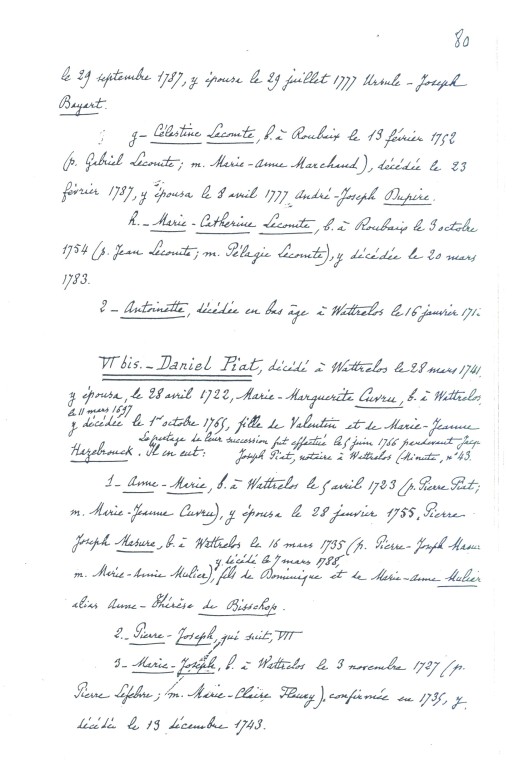 80
le 29 septembre 1787, y épousa le 29 juillet 1777 Ursule-Joseph
Bayart.
g- Célestine Lecomte, b. à Roubaix le 13 février 1752
(p. Gabriel Lecomte; m. Marie-Anne Marchand), décédée le 23
février 1787, y épousa le 8 avril 1777 André-Joseph Dupire.
h.- Marie-Catherine Lecomte, b. à Roubaix le 3 octobre
1754 (p. Jean Lecomte; m. Pélagie Lecomte), y décédée le 20 mars
1783.
2- Antoinette, décédée en bas âge à Wattrelos le 16 janvier
VI bis.- Daniel Piat, décédé à Wattrelos le 28 mars 1741,
y épousa, le 28 avril 1722, Marie-Marguerite Cuvru, b. à Wattrelos
le 11 mars 1697
y décédée le 1er octobre 1765, fille de Valentin et de Marie-Jeanne
Le partage de leur succession fut effectué le 5 juin 1766 pardevant Jacq-
Hazebrouck. Il en eut: Joseph Piat, notaire à Wattrelos (Minute, n° 43.
1- Anne-Marie, b. à Wattrelos le 5 avril 1723 (p. Pierre Piat;
m. Marie-Jeanne Cuvru), y épousa le 28 janvier 1755, Pierre
Joseph Masure, b. à Wattrelos le 16 mars 1735 (p. Pierre-Joseph Masu
y décédé le 7 mars 1788,
m. Marie-Annie Mulier), fils de Dominique et de Marie-Anne Mulier
alias Anne-Thérèse de Bisschop.
2.- Pierre-Joseph, qui suit, VII
3- Marie-Joseph, b. à Wattrelos le 3 novembre 1727 (p.
Pierre Lefebvre; m. Marie-Claire Fleury), confirmée en 1735, y
décédée le 13 décembre 1743.